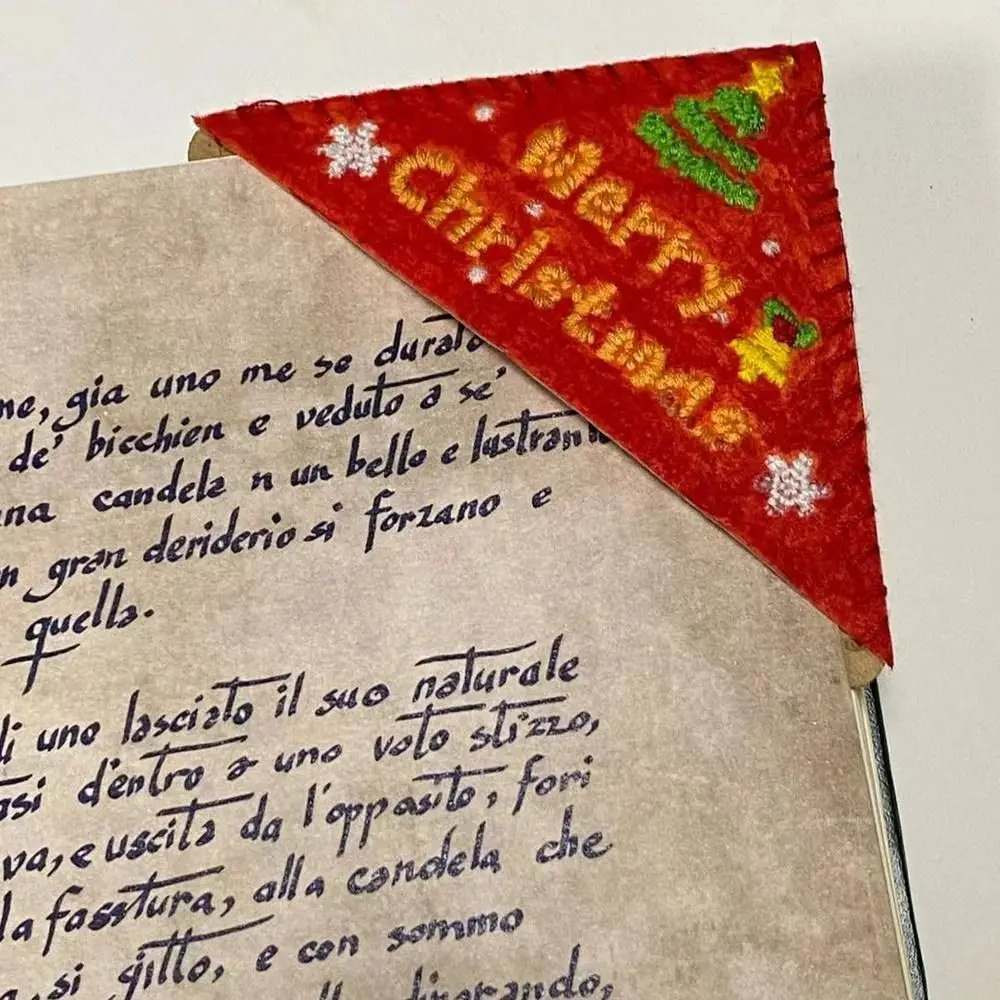 Merry
Christmas
ne, gia uno me se durato
de' bicchien e veduto a se'
una candela n un bello e lustran
n gran deriderio si forzano e
quella.
di uno lasciato il suo naturale
asi d'entro a uno voto stizzo,
va, e uscita da l'opposito, fori
la fasstura, alla candela che
a, si gitto, e con sommo